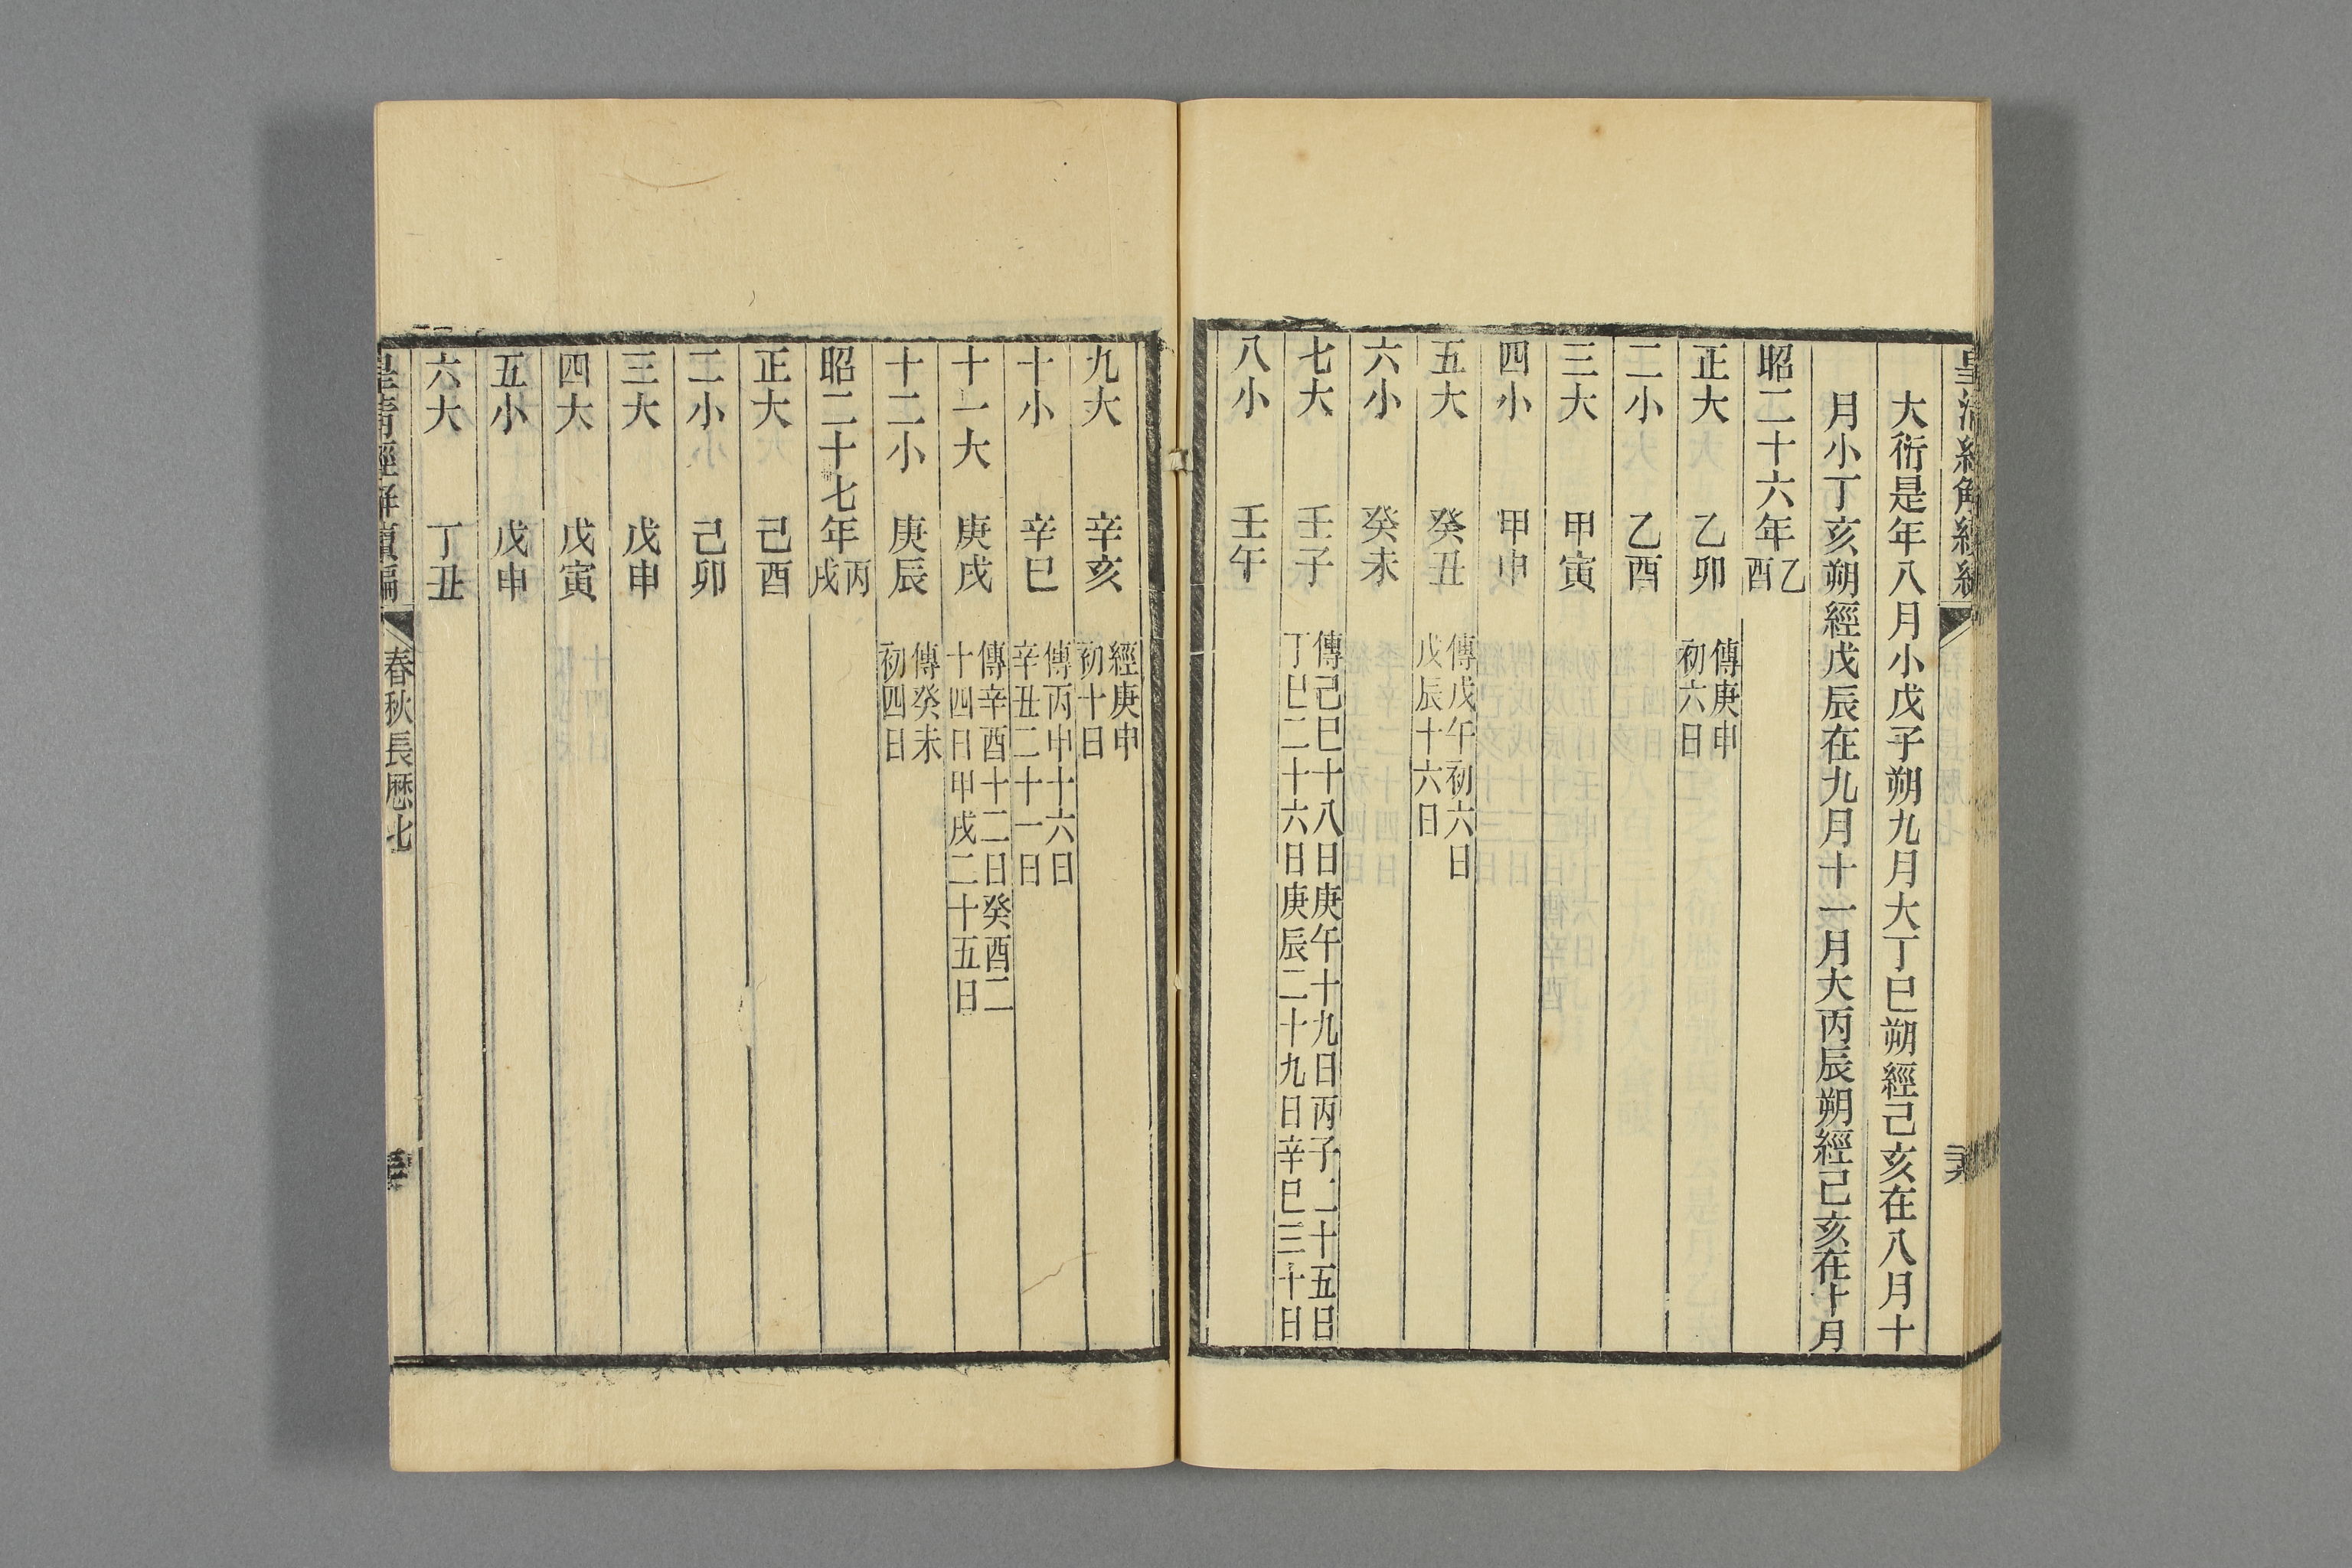 大衍是年八月小戊子朔九月大丁巳朔經己亥在八月十
月小丁亥朔經戊辰在九月十一月大丙辰朔經己亥在十月
昭二十六年乙酉
正大 乙卯 傳庚申初六日
二小 乙酉
三大 甲寅
四小 甲申
五大 癸丑 傳戊午初六日戊辰十六日
六小 癸未
七大 壬子 傳己巳十八日庚午十九日丙子二十五日丁巳二十六日庚辰二十九日辛巳三十日
八小 壬午
九大 辛亥 經庚申初十日
十小 辛巳 傳丙申十六日辛丑二十一日
十一大 庚戌 傳辛酉十二日癸酉二十四日甲戌二十五日
十二小 庚辰 傳癸未初四日
昭二十七年丙戌
正大 己酉
二小 己卯
三大 戊申
四大 戊寅
五小 戊申
六大 丁丑
皇清經解續編
春秋長厤七